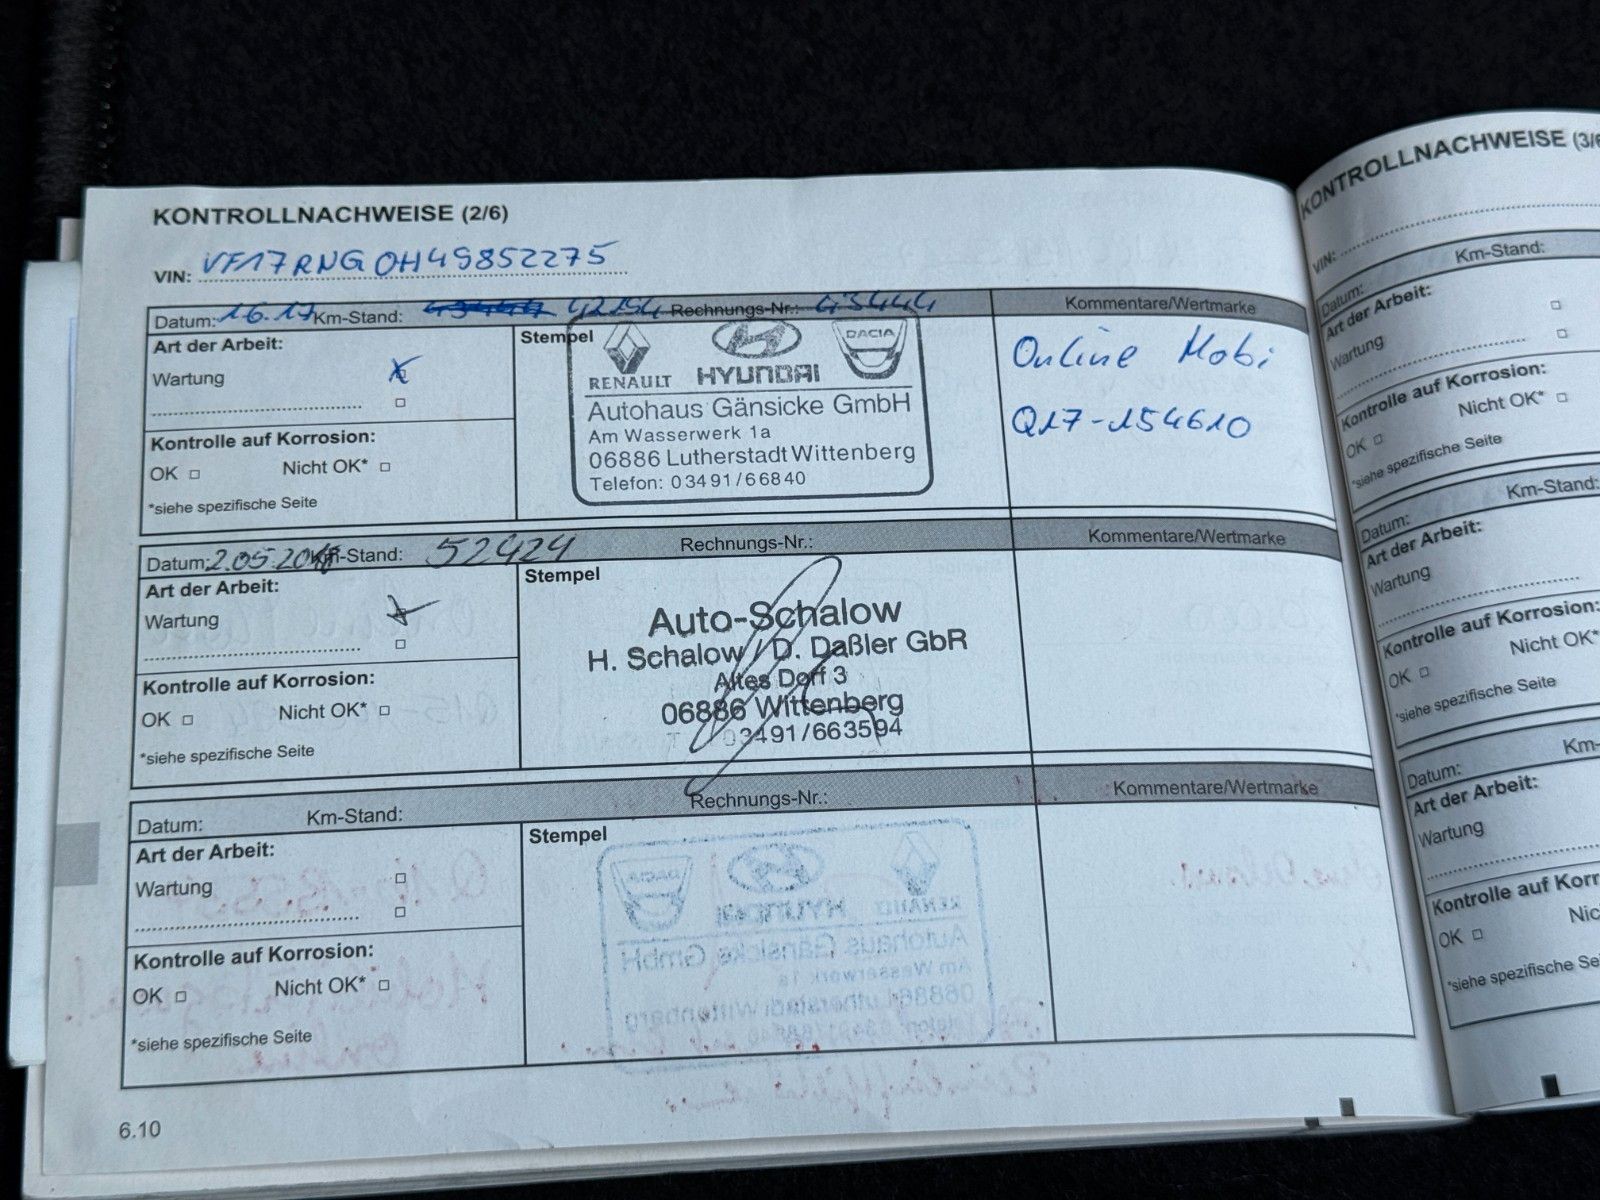 KONTROLLNACHWEISE (2/6)
VIN: VF17RNG0H49852275
Datum: 16.17 Km-Stand: 42154 Rechnungs-Nr.: 43444 Kommentare/Wertmarke
Art der Arbeit:
Wartung
Kontrolle auf Korrosion:
OK Nicht OK*
*siehe spezifische Seite
Stempel
RENAULT HYUNDAI DACIA
Autohaus Gänsicke GmbH
Am Wasserwerk 1a
06886 Lutherstadt Wittenberg
Telefon: 03491/66840
Online Mobi
Q17-154610
Datum: 2.05.2018 Km-Stand: 52424 Rechnungs-Nr.: Kommentare/Wertmarke
Art der Arbeit:
Wartung
Kontrolle auf Korrosion:
OK Nicht OK*
*siehe spezifische Seite
Stempel
Auto-Schalow
H. Schalow / D. Daßler GbR
Altes Dorf 3
06886 Wittenberg
03491/663594
Datum: Km-Stand: Rechnungs-Nr.: Kommentare/Wertmarke
Art der Arbeit:
Wartung
Kontrolle auf Korrosion:
OK Nicht OK*
*siehe spezifische Seite
Stempel
6.10
KONTROLLNACHWEISE (3/6
VIN:
Datum: Km-Stand:
Art der Arbeit:
Wartung
Kontrolle auf Korrosion:
OK Nicht OK*
*siehe spezifische Seite
Datum: Km-Stand:
Art der Arbeit:
Wartung
Kontrolle auf Korrosion:
OK Nicht OK*
*siehe spezifische Seite
Datum: Km-
Art der Arbeit:
Wartung
Kontrolle auf Korr
OK Nic
*siehe spezifische Se